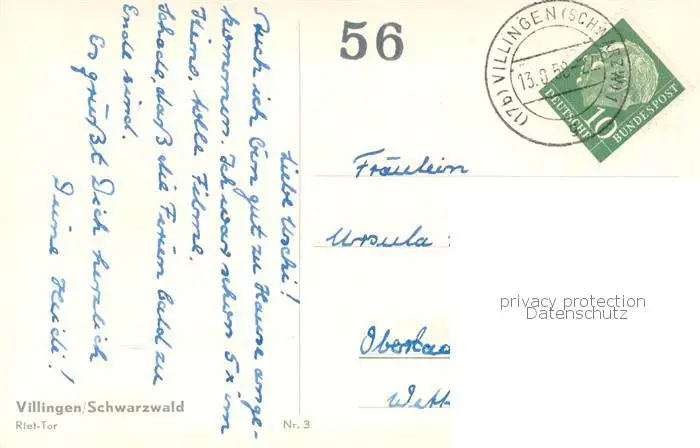 Liebe Uschi!
Auch ich bin gut zu Hause ange-
kommen. Ich war schon 5x im
Kino, tolle Filme.
Schade, daß die Ferien bald zu
Ende sind.
Es grüßt Dich herzlich
Deine Heidi!
56
(17b) VILLINGEN (SCHWARZW)
13.9.58
DEUTSCHE
BUNDESPOST
10
Fräulein
Ursula
privacy protection
Datenschutz
Villingen/Schwarzwald
Riet-Tor
Nr. 3